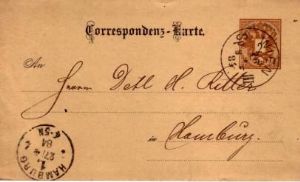 Correspondenz-Karte.
An
Herrn Detl H. Ritter
in
Hamburg.
HAMBURG
1.
27/4
84